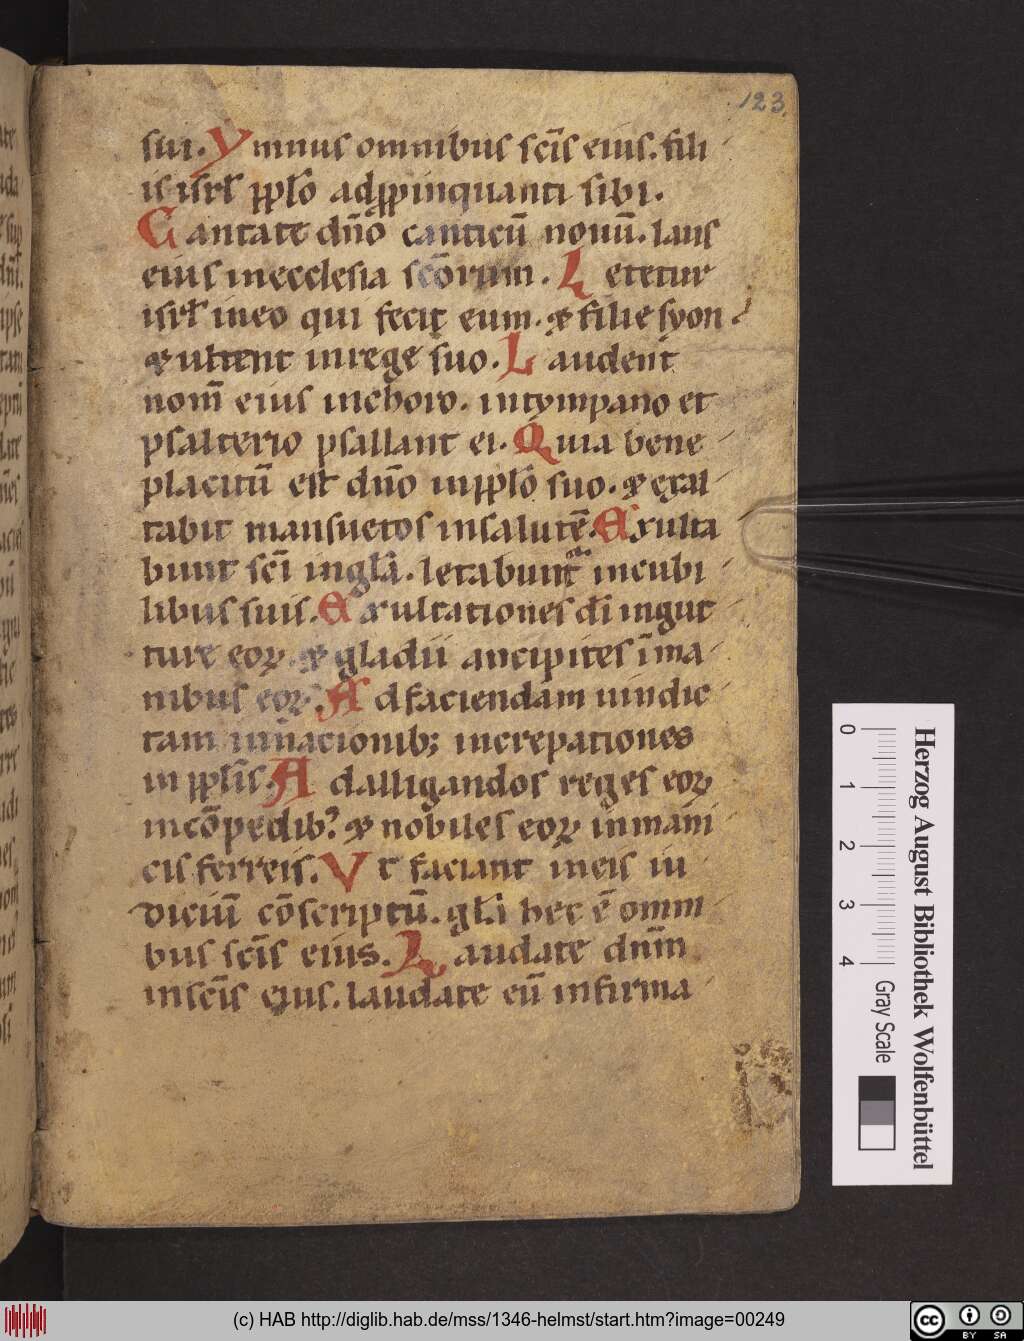 123
sui. Ymnus omnibus sc̄is eius. fili
is isrl̄ pp̄lo adpp̄inquanti sibi.
Cantate dn̄o canticū nouū. laus
eius inecclesia sc̄orum. Letetur
isrl̄ ineo qui fecit eum. & filie syon
exultent inrege suo. Laudent
nom̄ eius inchoro. intympano et
psalterio psallant ei. Quia bene
placitū est dn̄o inpp̄lo suo. & exal
tabit mansuetos insalutē. Exulta
bunt sc̄i ingl̄a. letabunt᷑ incubi
libus suis. Exultationes dī ingut
ture eoꝝ. & gladii ancipites īma
nibus eoꝝ. Adfaciendam uindic
tam innac̄ionib; increpationes
in pp̄lis. Adalligandos reges eoꝝ
incōpedib; & nobiles eoꝝ inmani
cis ferreis. Vt faciant ineis iu
diciū cōscriptū. gl̄a hec ē omni
bus sc̄is eius. Laudate dn̄m
insc̄is eius. laudate eū infirma
Herzog August Bibliothek Wolfenbüttel
0 1 2 3 4 Gray Scale
(c) HAB http://diglib.hab.de/mss/1346-helmst/start.htm?image=00249
cc BY SA